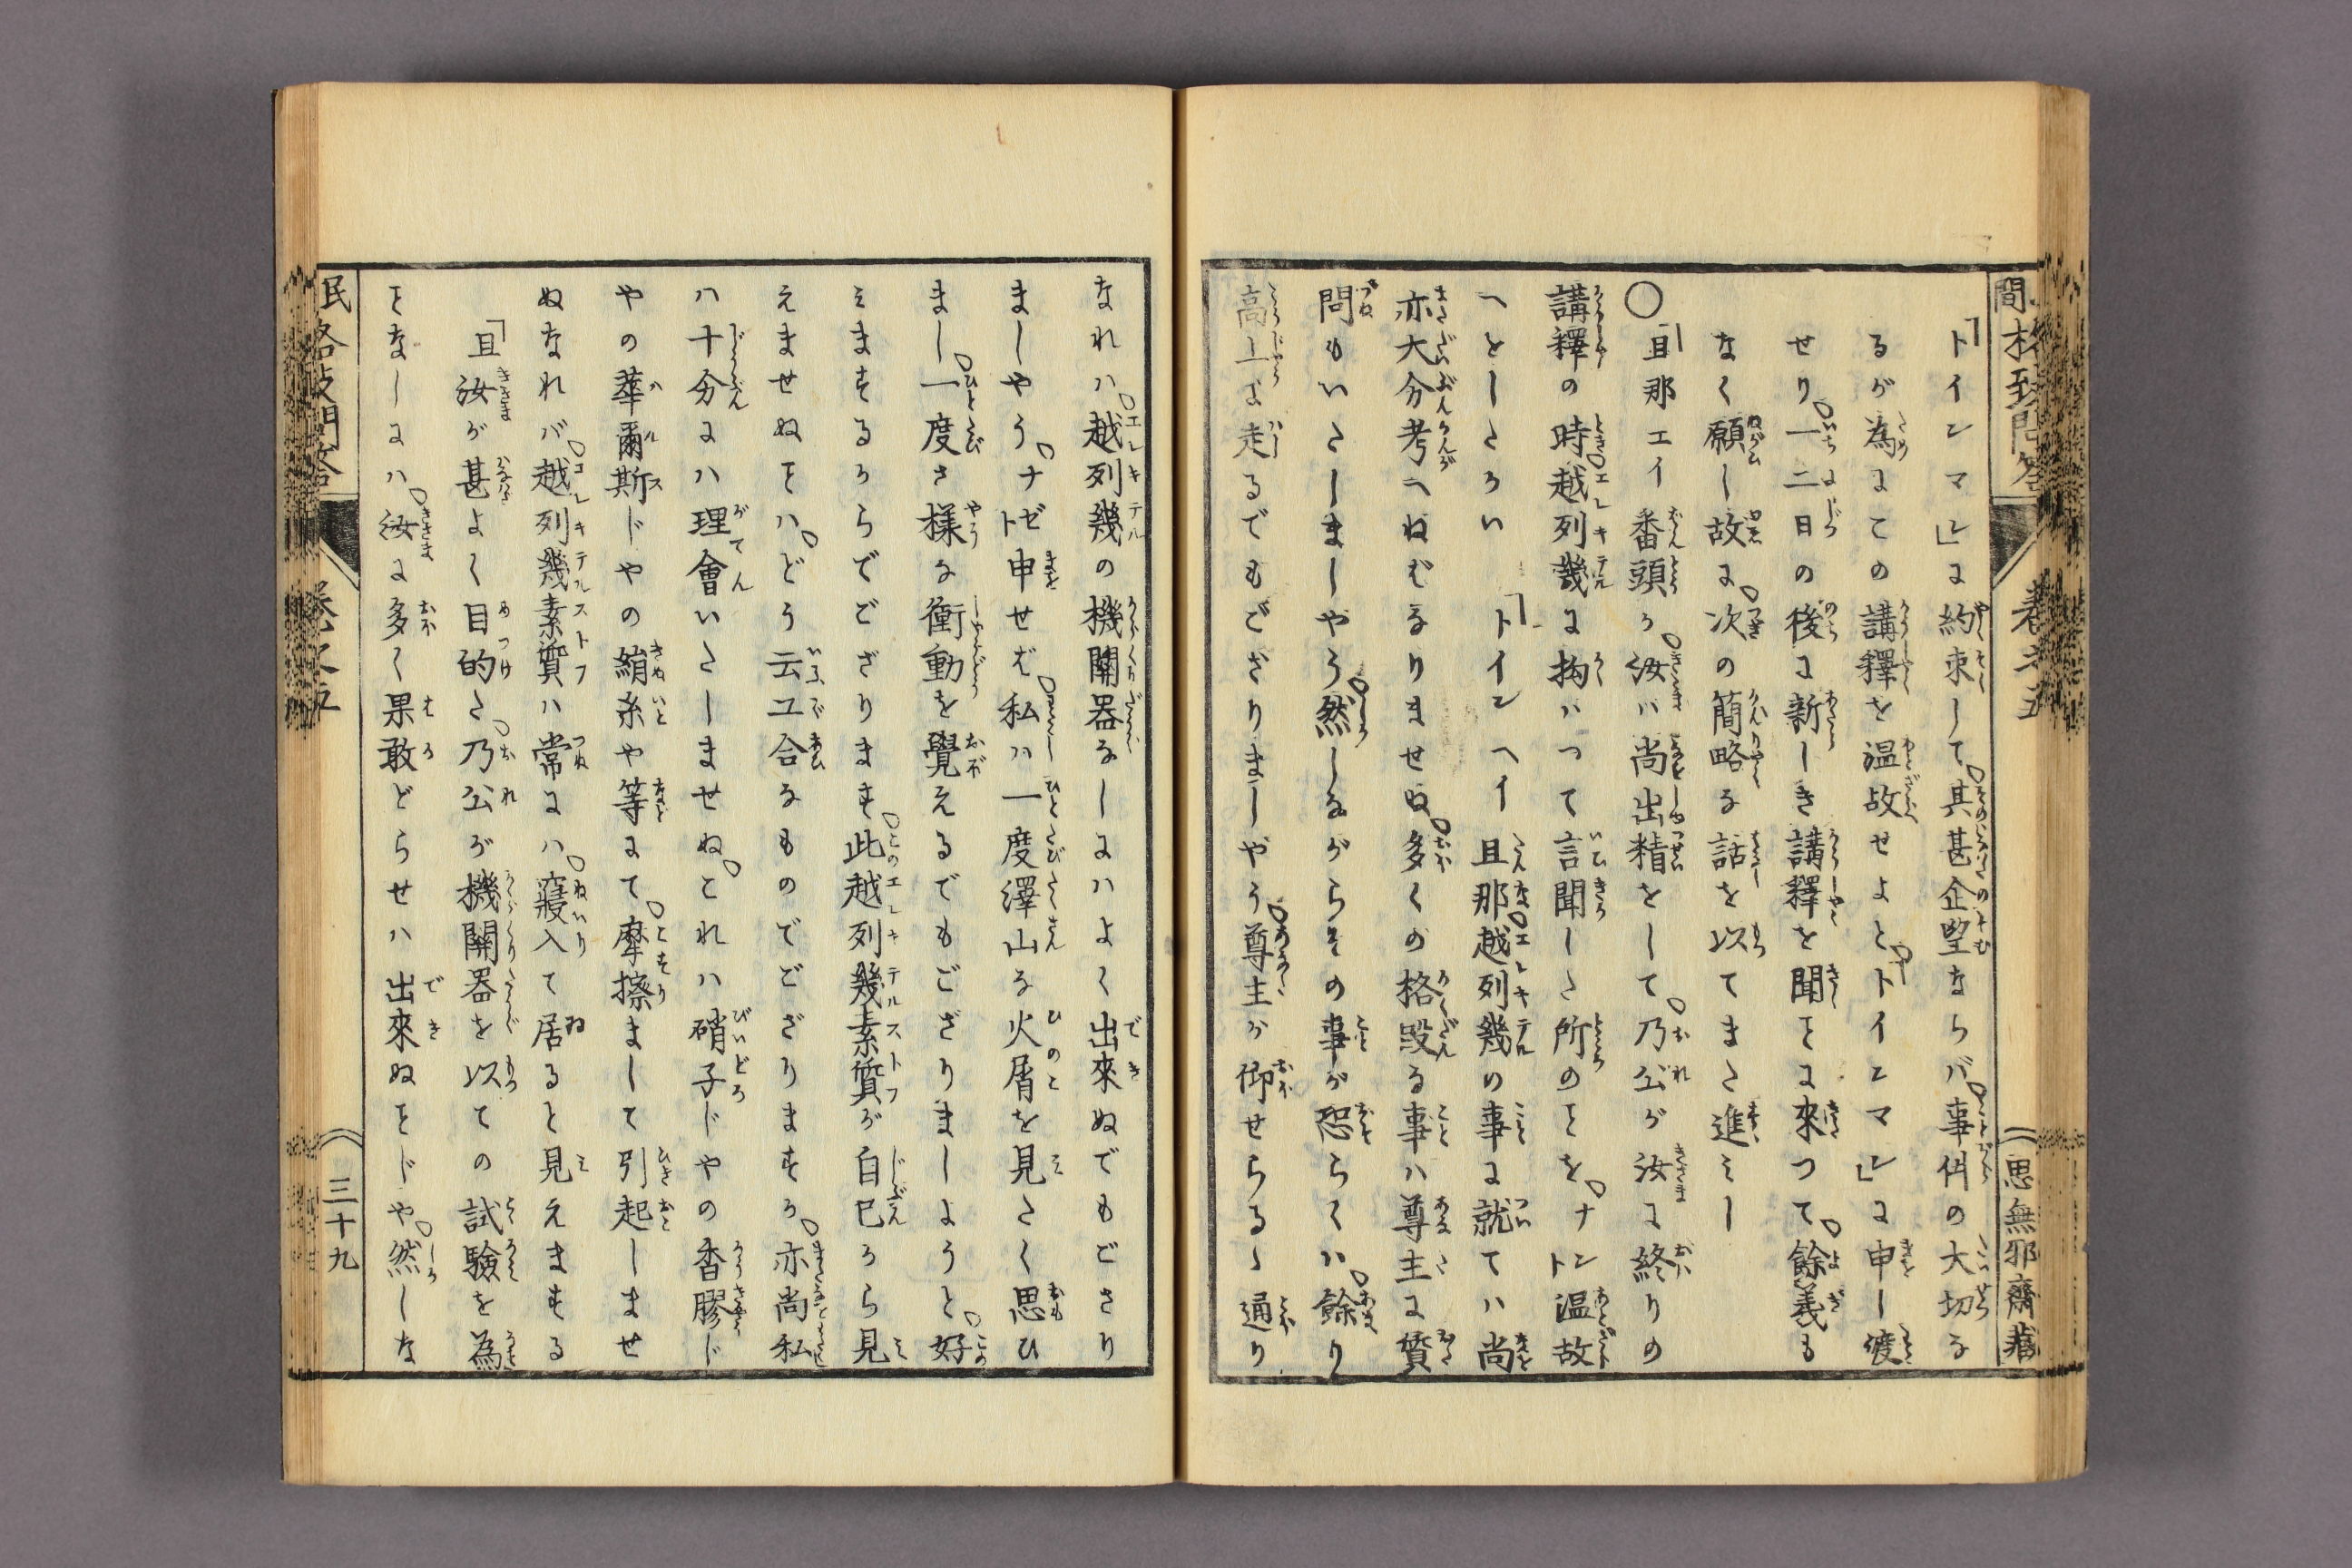 思無邪齋藏
「トインマレ」に約束して其甚企望ならバ事件の大切な
るが為にての講釋を温故せよとトインマレ」に申し渡
せり一二日の後に新しき講釋を聞をに來つて餘義も
なく願し故に次の簡略な話を以てまた進ミし
○「旦那エイ番頭か汝ハ尚出精をして乃公が汝に終りの
講釋の時越列幾に拘ハつて言聞した所のことをナント温故
へとしたかい「トインヘイ旦那越列幾の事に就てハ尚
亦大分考へねむなりませぬ多くの格段な事ハ尊主に質
問もいたしましやう然しながらその事が恐らくハ餘り
高上に走るでもござりましやう尊主が仰せらるゝ通り
なれハ越列幾の機關器なしにハよく出來ぬでもござり
ましやうナゼト申せば私ハ一度澤山な火屑を見たく思ひ
まし一度さ様な衝動を覺えるでもござりましようと好
ミまするからでござりまする此越列幾素質が自已から見
えませぬことハどう云工合なものでござりまするか亦尚私
ハ十分にハ理會いたしませぬこれハ硝子じやの香膠じ
やの華爾斯じやの絹糸や等にて摩擦まして引起しませ
ぬなれバ越列幾素質ハ常にハ寢入て居ると見えまする
「旦汝が甚よく目的た乃公が機關器を以ての試驗を為
ことなしにハ汝に多く果敢どらせハ出來ぬことじや然しな
卷之五
三十九